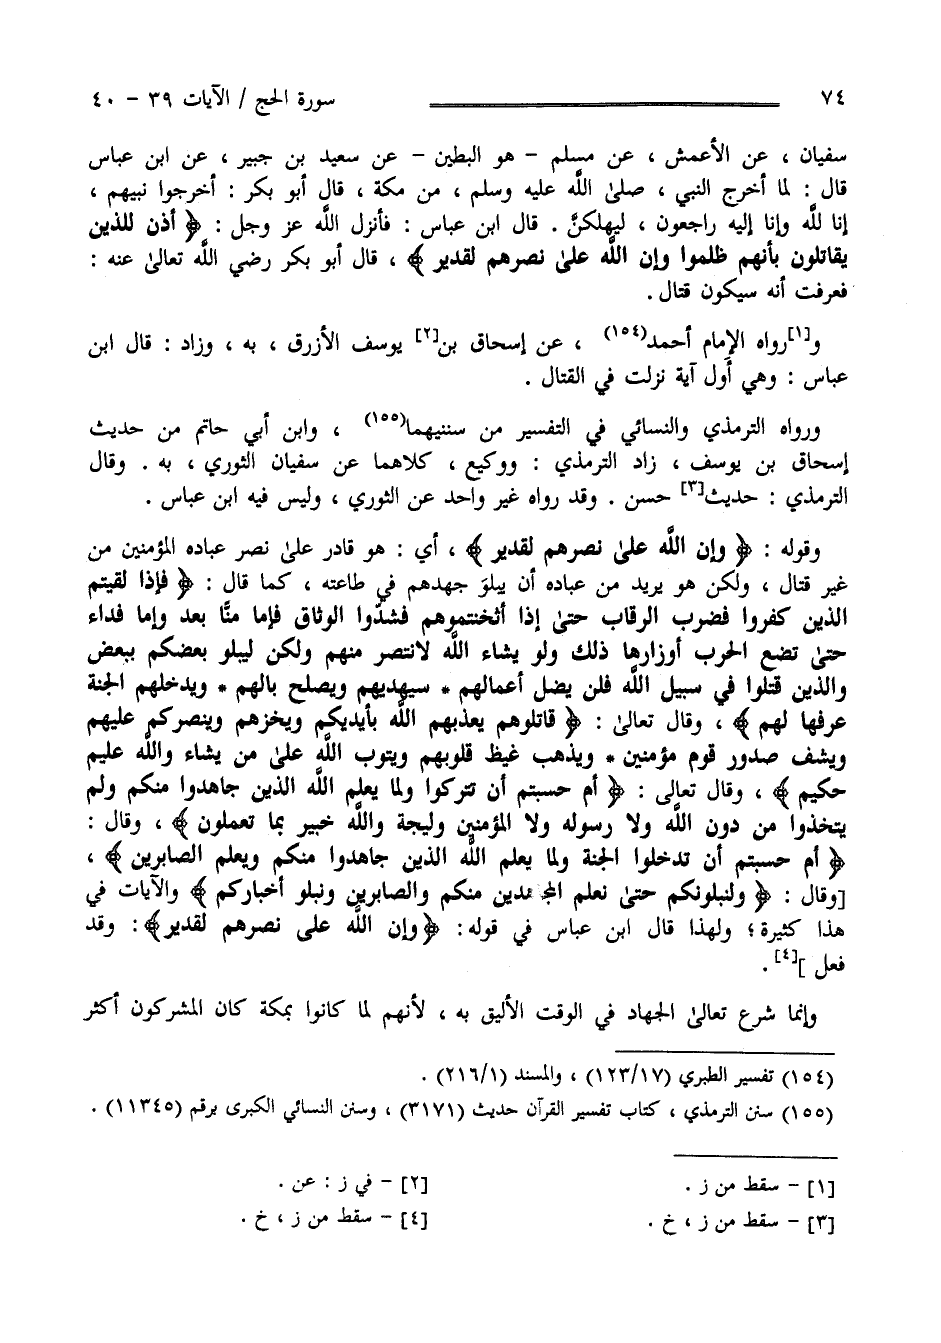 ٧٤ سورة الحج / الآيات ٣٩ - ٤٠
سفيان ، عن الأعمش ، عن مسلم - هو البطين - عن سعيد بن جبير ، عن ابن عباس
قال : لما أخرج النبي ، صلىٰ اللَّه عليه وسلم ، من مكة ، قال أبو بكر : أخرجوا نبيهم ،
إنا للَّه وإنا إليه راجعون ، ليهلكنَّ . قال ابن عباس : فأنزل اللَّه عز وجل : ﴿ أذن للذين
يقاتلون بأنهم ظلموا وإن اللَّه علىٰ نصرهم لقدير ﴾ ، قال أبو بكر رضي اللَّه تعالىٰ عنه :
فعرفت أنه سيكون قتال .
و[١]رواه الإمام أحمد(١٥٤) ، عن إسحاق بن[٢] يوسف الأزرق ، به ، وزاد : قال ابن
عباس : وهي أول آية نزلت في القتال .
ورواه الترمذي والنسائي في التفسير من سننيهما(١٥٥) ، وابن أبي حاتم من حديث
إسحاق بن يوسف ، زاد الترمذي : ووكيع ، كلاهما عن سفيان الثوري ، به . وقال
الترمذي : حديث[٣] حسن . وقد رواه غير واحد عن الثوري ، وليس فيه ابن عباس .
وقوله : ﴿ وإن اللَّه علىٰ نصرهم لقدير ﴾ ، أي : هو قادر علىٰ نصر عباده المؤمنين من
غير قتال ، ولكن هو يريد من عباده أن يبلوَ جهدهم في طاعته ، كما قال : ﴿ فإذا لقيتم
الذين كفروا فضرب الرقاب حتىٰ إذا أثخنتموهم فشدّوا الوثاق فإما منًّا بعد وإما فداء
حتىٰ تضع الحرب أوزارها ذلك ولو يشاء اللَّه لانتصر منهم ولكن ليبلو بعضكم ببعض
والذين قتلوا في سبيل اللَّه فلن يضل أعمالهم * سيهديهم ويصلح بالهم * ويدخلهم الجنة
عرفها لهم ﴾ ، وقال تعالىٰ : ﴿ قاتلوهم يعذبهم اللَّه بأيديكم ويخزهم وينصركم عليهم
ويشف صدور قوم مؤمنين * ويذهب غيظ قلوبهم ويتوب اللَّه علىٰ من يشاء واللَّه عليم
حكيم ﴾ ، وقال تعالى : ﴿ أم حسبتم أن تتركوا ولما يعلم اللَّه الذين جاهدوا منكم ولم
يتخذوا من دون اللَّه ولا رسوله ولا المؤمنين وليجة واللَّه خبير بما تعملون ﴾ ، وقال :
﴿ أم حسبتم أن تدخلوا الجنة ولما يعلم اللَّه الذين جاهدوا منكم ويعلم الصابرين ﴾ ،
[وقال : ﴿ ولنبلونكم حتىٰ نعلم المجاهدين منكم والصابرين ونبلو أخباركم ﴾ والآيات في
هذا كثيرة؛ ولهذا قال ابن عباس في قوله: ﴿وإن اللَّه على نصرهم لقدير﴾: وقد
فعل ][٤] .
وإنما شرع تعالىٰ الجهاد في الوقت الأليق به ، لأنهم لما كانوا بمكة كان المشركون أكثر
(١٥٤) تفسير الطبري (١٢٣/١٧) ، والمسند (٢١٦/١) .
(١٥٥) سنن الترمذي ، كتاب تفسير القرآن حديث (٣١٧١) ، وسنن النسائي الكبرى برقم (١١٣٤٥) .
[١] - سقط من ز . [٢] - في ز : عن .
[٣] - سقط من ز ، خ . [٤] - سقط من ز ، خ .